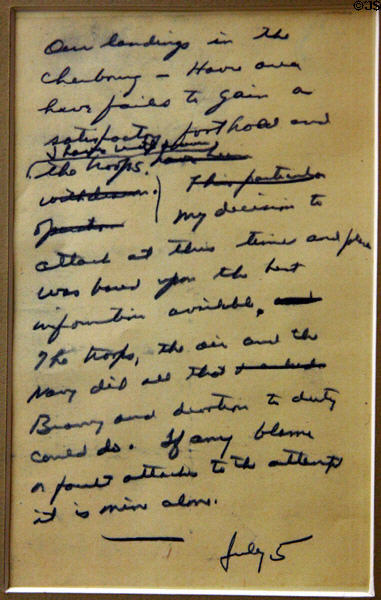 ©JS
Our landings in the
Cherbourg - Havre area
have failed to gain a
satisfactory foothold and
I have withdrawn
the troops. have been
withdrawn. This particular
operation My decision to
attack at this time and place
was based upon the best
information available, and
The troops, the air and the
Navy did all that
Bravery and devotion to duty
could do. If any blame
or fault attaches to the attempt
it is mine alone.
July 5